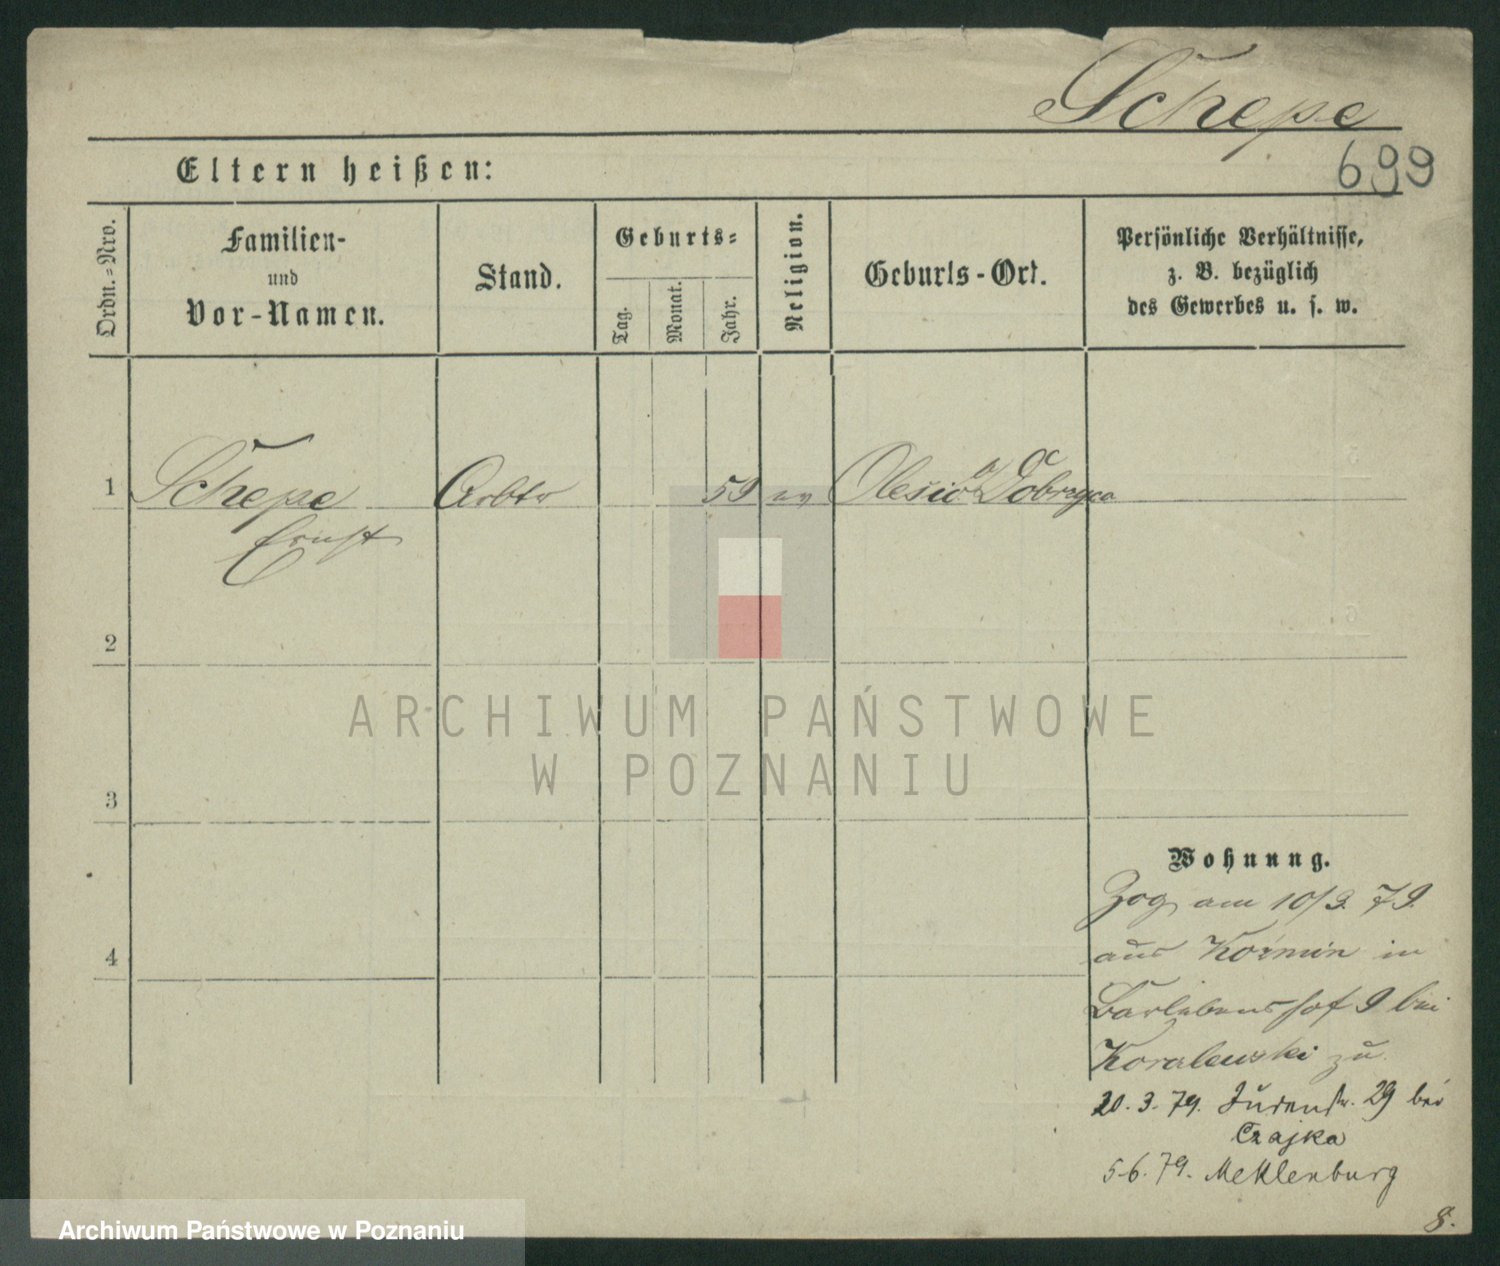 Schepe
699
Eltern heißen:
Ordn.-Nro.
Familien-
und
Vor-Namen.
Stand.
Geburts-
Tag.
Monat.
Jahr.
Religion.
Geburts-Ort.
Persönliche Verhältnisse,
z. B. bezüglich
des Gewerbes u. s. w.
1 Schepe Arbtr 59 ev Dobrzyca
Ernst
2
ARCHIWUM PAŃSTWOWE
W POZNANIU
3
Wohnung.
Zog am 10/3. 79.
4
aus Kozmin in
Barlebenshof 9 bei
Koralewski zu
20. 3. 79. Judenstr. 29 bei
Czajka
5.6.79. Meklenburg
8.
Archiwum Państwowe w Poznaniu